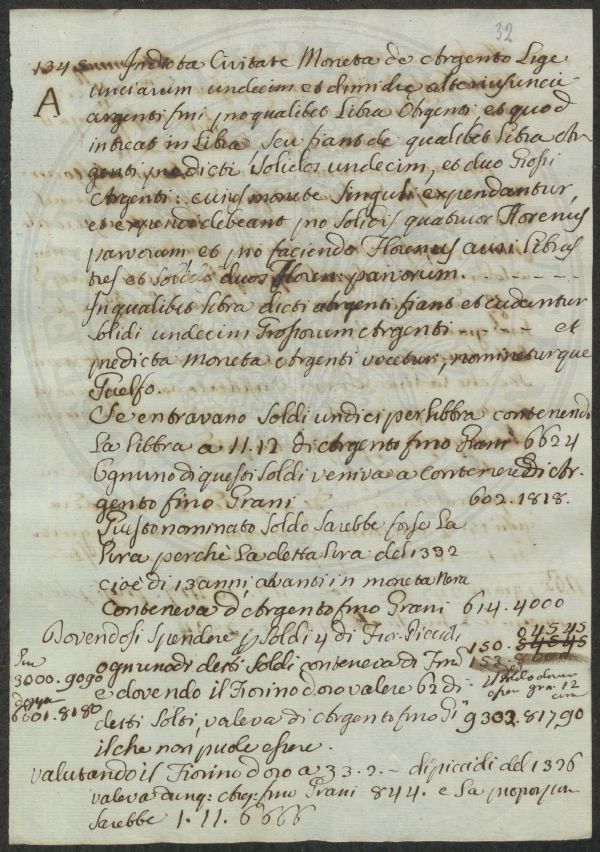 32
1345 In dicta Civitate Moneta de Argento Lige
A unciarum undecim et dimidie alterius uncie
argenti fini pro qualibet Libra Argenti, et quod
intrent in Libra, seu fiant de qualibet Libra Ar-
genti predicti Solidos undecim, et duo Grossi
Argenti: cuius monete Singuli expendantur,
et expendi debeant pro Solidis quatuor Florenus
parvorum et pro faciendo Florenus auri Libras
tres et Solidos duos Floren: parvorum. - - - -
In qualibet libra dicti Argenti fiant et cudantur
Solidi undecim Grossorum Argenti - - - et
predicta Moneta Argenti vocetur, nomineturque
Guelfo.
Se entravano Soldi undici per libbra contenendo
La libbra a 11.12 di Argento fino Grani 6624
Ognuno di questi Soldi veniva a contenere Di Ar-
gento fino Grani 602.1818.
Questo nominato Soldo Sarebbe forse La
Lira perchè La detta Lira del 1332
cioè di 13 anni avanti in moneta Nera
Conteneva d'Argento fino Grani 614.4000
Dovendosi Spendere p Soldi 4 di Fior. Piccioli 0454S
ognuno di detti Soldi conteneva di Fino 150.
3000.9090
e dovendo il Fiorino d'oro valere 62 di
6601.8180
detti Soldi, valeva di Argento fino Gi 9332.81790
il che non puole essere.
valutando il Fiorino d'oro a 33.2. - di piccioli del 1326
valeva dunq: Arg: fino Grani 844. e La proporzion
Sarebbe 1.11.6666